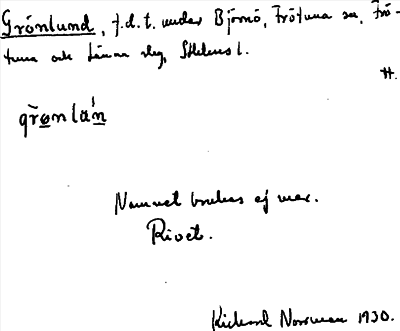 Grönlund, f.d.t. under Björnö, Frötuna sn, Frö-
tuna och Länna slg, Sthlms l.
H.
grø̄nlán
Namnet brukas ej mer.
Rivet.
Rickard Norrman 1930.